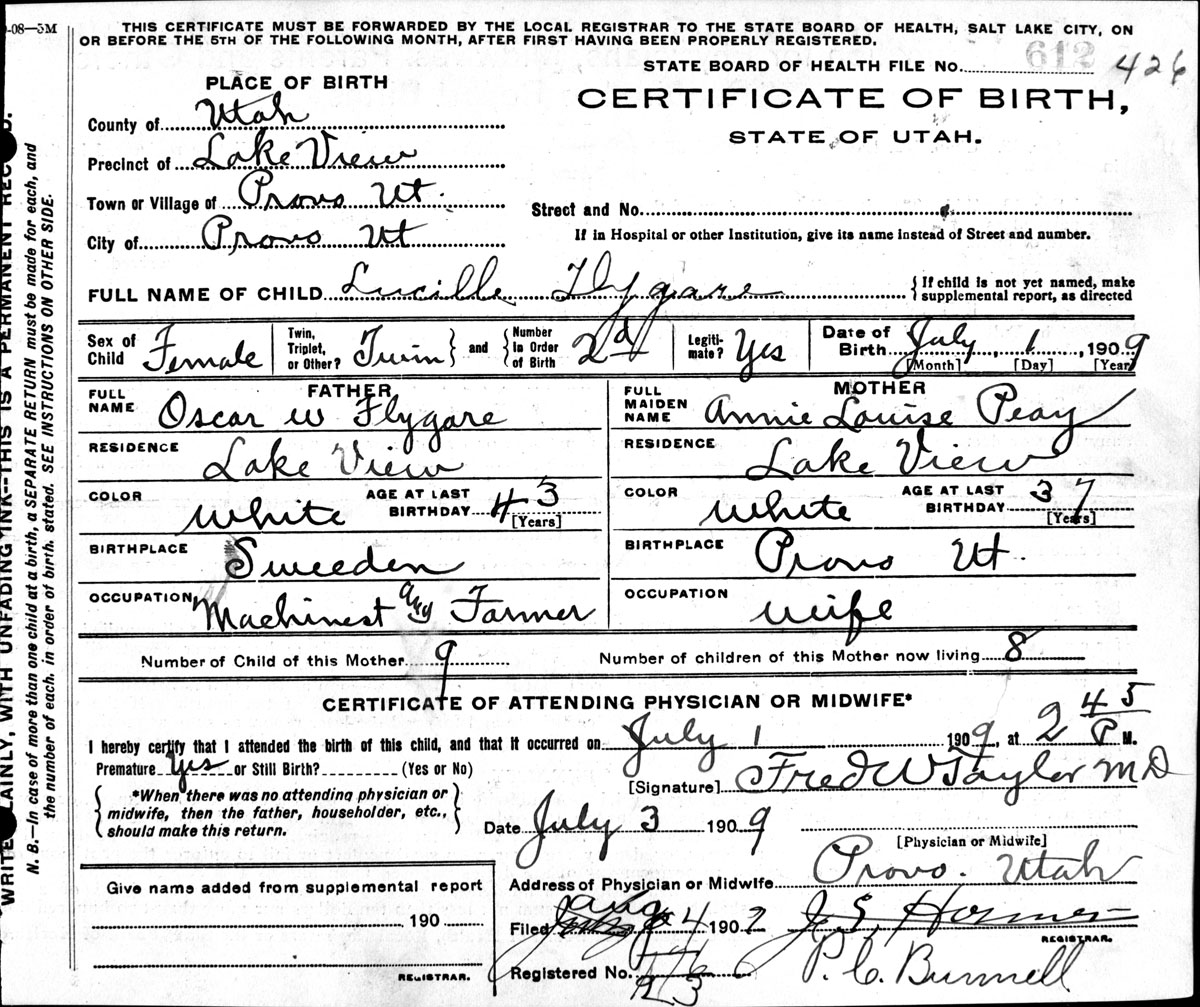 -08—5M
THIS CERTIFICATE MUST BE FORWARDED BY THE LOCAL REGISTRAR TO THE STATE BOARD OF HEALTH, SALT LAKE CITY, ON
OR BEFORE THE 5TH OF THE FOLLOWING MONTH, AFTER FIRST HAVING BEEN PROPERLY REGISTERED.
STATE BOARD OF HEALTH FILE NO. 612 426
PLACE OF BIRTH
CERTIFICATE OF BIRTH,
STATE OF UTAH.
County of Utah
Precinct of Lake View
Town or Village of Provo Ut.
City of Provo Ut
Street and No.
If in Hospital or other Institution, give its name instead of Street and number.
FULL NAME OF CHILD Lucille Flygare
{ If child is not yet named, make
supplemental report, as directed
Sex of Child Female
Twin, Triplet, or Other? Twin } and { Number In Order of Birth 2d
Legitimate? Yes
Date of Birth July, 1, 1909
[Month] [Day] [Year]
FATHER
FULL NAME Oscar W Flygare
MOTHER
FULL MAIDEN NAME Annie Louise Peay
RESIDENCE Lake View
RESIDENCE Lake View
COLOR White AGE AT LAST BIRTHDAY 43 [Years]
COLOR White AGE AT LAST BIRTHDAY 37 [Years]
BIRTHPLACE Sweeden
BIRTHPLACE Provo Ut.
OCCUPATION Machinest any Farmer
OCCUPATION Wife
Number of Child of this Mother 9
Number of children of this Mother now living 8
CERTIFICATE OF ATTENDING PHYSICIAN OR MIDWIFE*
I hereby certify that I attended the birth of this child, and that it occurred on July 1 1909, at 2 45 P M.
Premature Yes or Still Birth? (Yes or No)
[Signature] Fred W Taylor M D
{ *When there was no attending physician or
midwife, then the father, householder, etc.,
should make this return. }
Date July 3 1909
[Physician or Midwife]
Address of Physician or Midwife Provo. Utah
Give name added from supplemental report
190
REGISTRAR.
Filed Aug 4 190
J. S. Horner
REGISTRAR.
Registered No. 23
P. C. Bunnell
WRITE PLAINLY, WITH UNFADING INK--THIS IS A PERMANENT RECORD.
N. B.—In case of more than one child at a birth, a SEPARATE RETURN must be made for each, and
the number of each, in order of birth, stated. SEE INSTRUCTIONS ON OTHER SIDE.